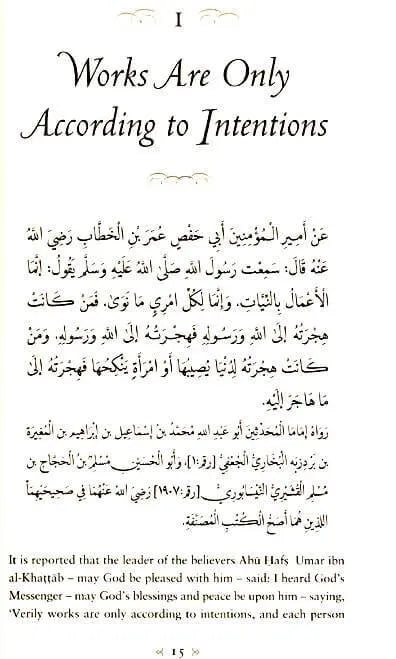 I
Works Are Only
According to Intentions
عَنْ أَمِيرِ الْمُؤْمِنِينَ أَبِي حَفْصٍ عُمَرَ بْنِ الْخَطَّابِ رَضِيَ اللهُ
عَنْهُ قَالَ: سَمِعْتُ رَسُولَ اللهِ صَلَّى اللهُ عَلَيْهِ وَسَلَّمَ يَقُولُ: إِنَّمَا
الْأَعْمَالُ بِالنِّيَّاتِ، وَإِنَّمَا لِكُلِّ امْرِئٍ مَا نَوَىٰ، فَمَنْ كَانَتْ
هِجْرَتُهُ إِلَى اللهِ وَرَسُولِهِ فَهِجْرَتُهُ إِلَى اللهِ وَرَسُولِهِ، وَمَنْ
كَانَتْ هِجْرَتُهُ لِدُنْيَا يُصِيبُهَا أَوْ امْرَأَةٍ يَنْكِحُهَا فَهِجْرَتُهُ إِلَىٰ
مَا هَاجَرَ إِلَيْهِ.
رَوَاهُ إِمَامَا الْمُحَدِّثِينَ أَبُو عَبْدِ اللهِ مُحَمَّدُ بْنُ إِسْمَاعِيلَ بْنِ إِبْرَاهِيمَ بْنِ الْمُغِيرَةِ
بْنِ بَرْدِزْبَه الْبُخَارِيُّ الْجُعْفِيُّ [رقم:١]، وَأَبُو الْحُسَيْنِ مُسْلِمُ بْنُ الْحَجَّاجِ بْنِ
مُسْلِمٍ الْقُشَيْرِيُّ النَّيْسَابُورِيُّ [رقم:١٩٠٧] رَضِيَ اللهُ عَنْهُمَا فِي صَحِيحَيْهِمَا
اللَّذَيْنِ هُمَا أَصَحُّ الْكُتُبِ الْمُصَنَّفَةِ.
It is reported that the leader of the believers Abū Ḥafṣ Umar ibn
al-Khaṭṭāb – may God be pleased with him – said: I heard God's
Messenger – may God's blessings and peace be upon him – saying,
'Verily works are only according to intentions, and each person
15